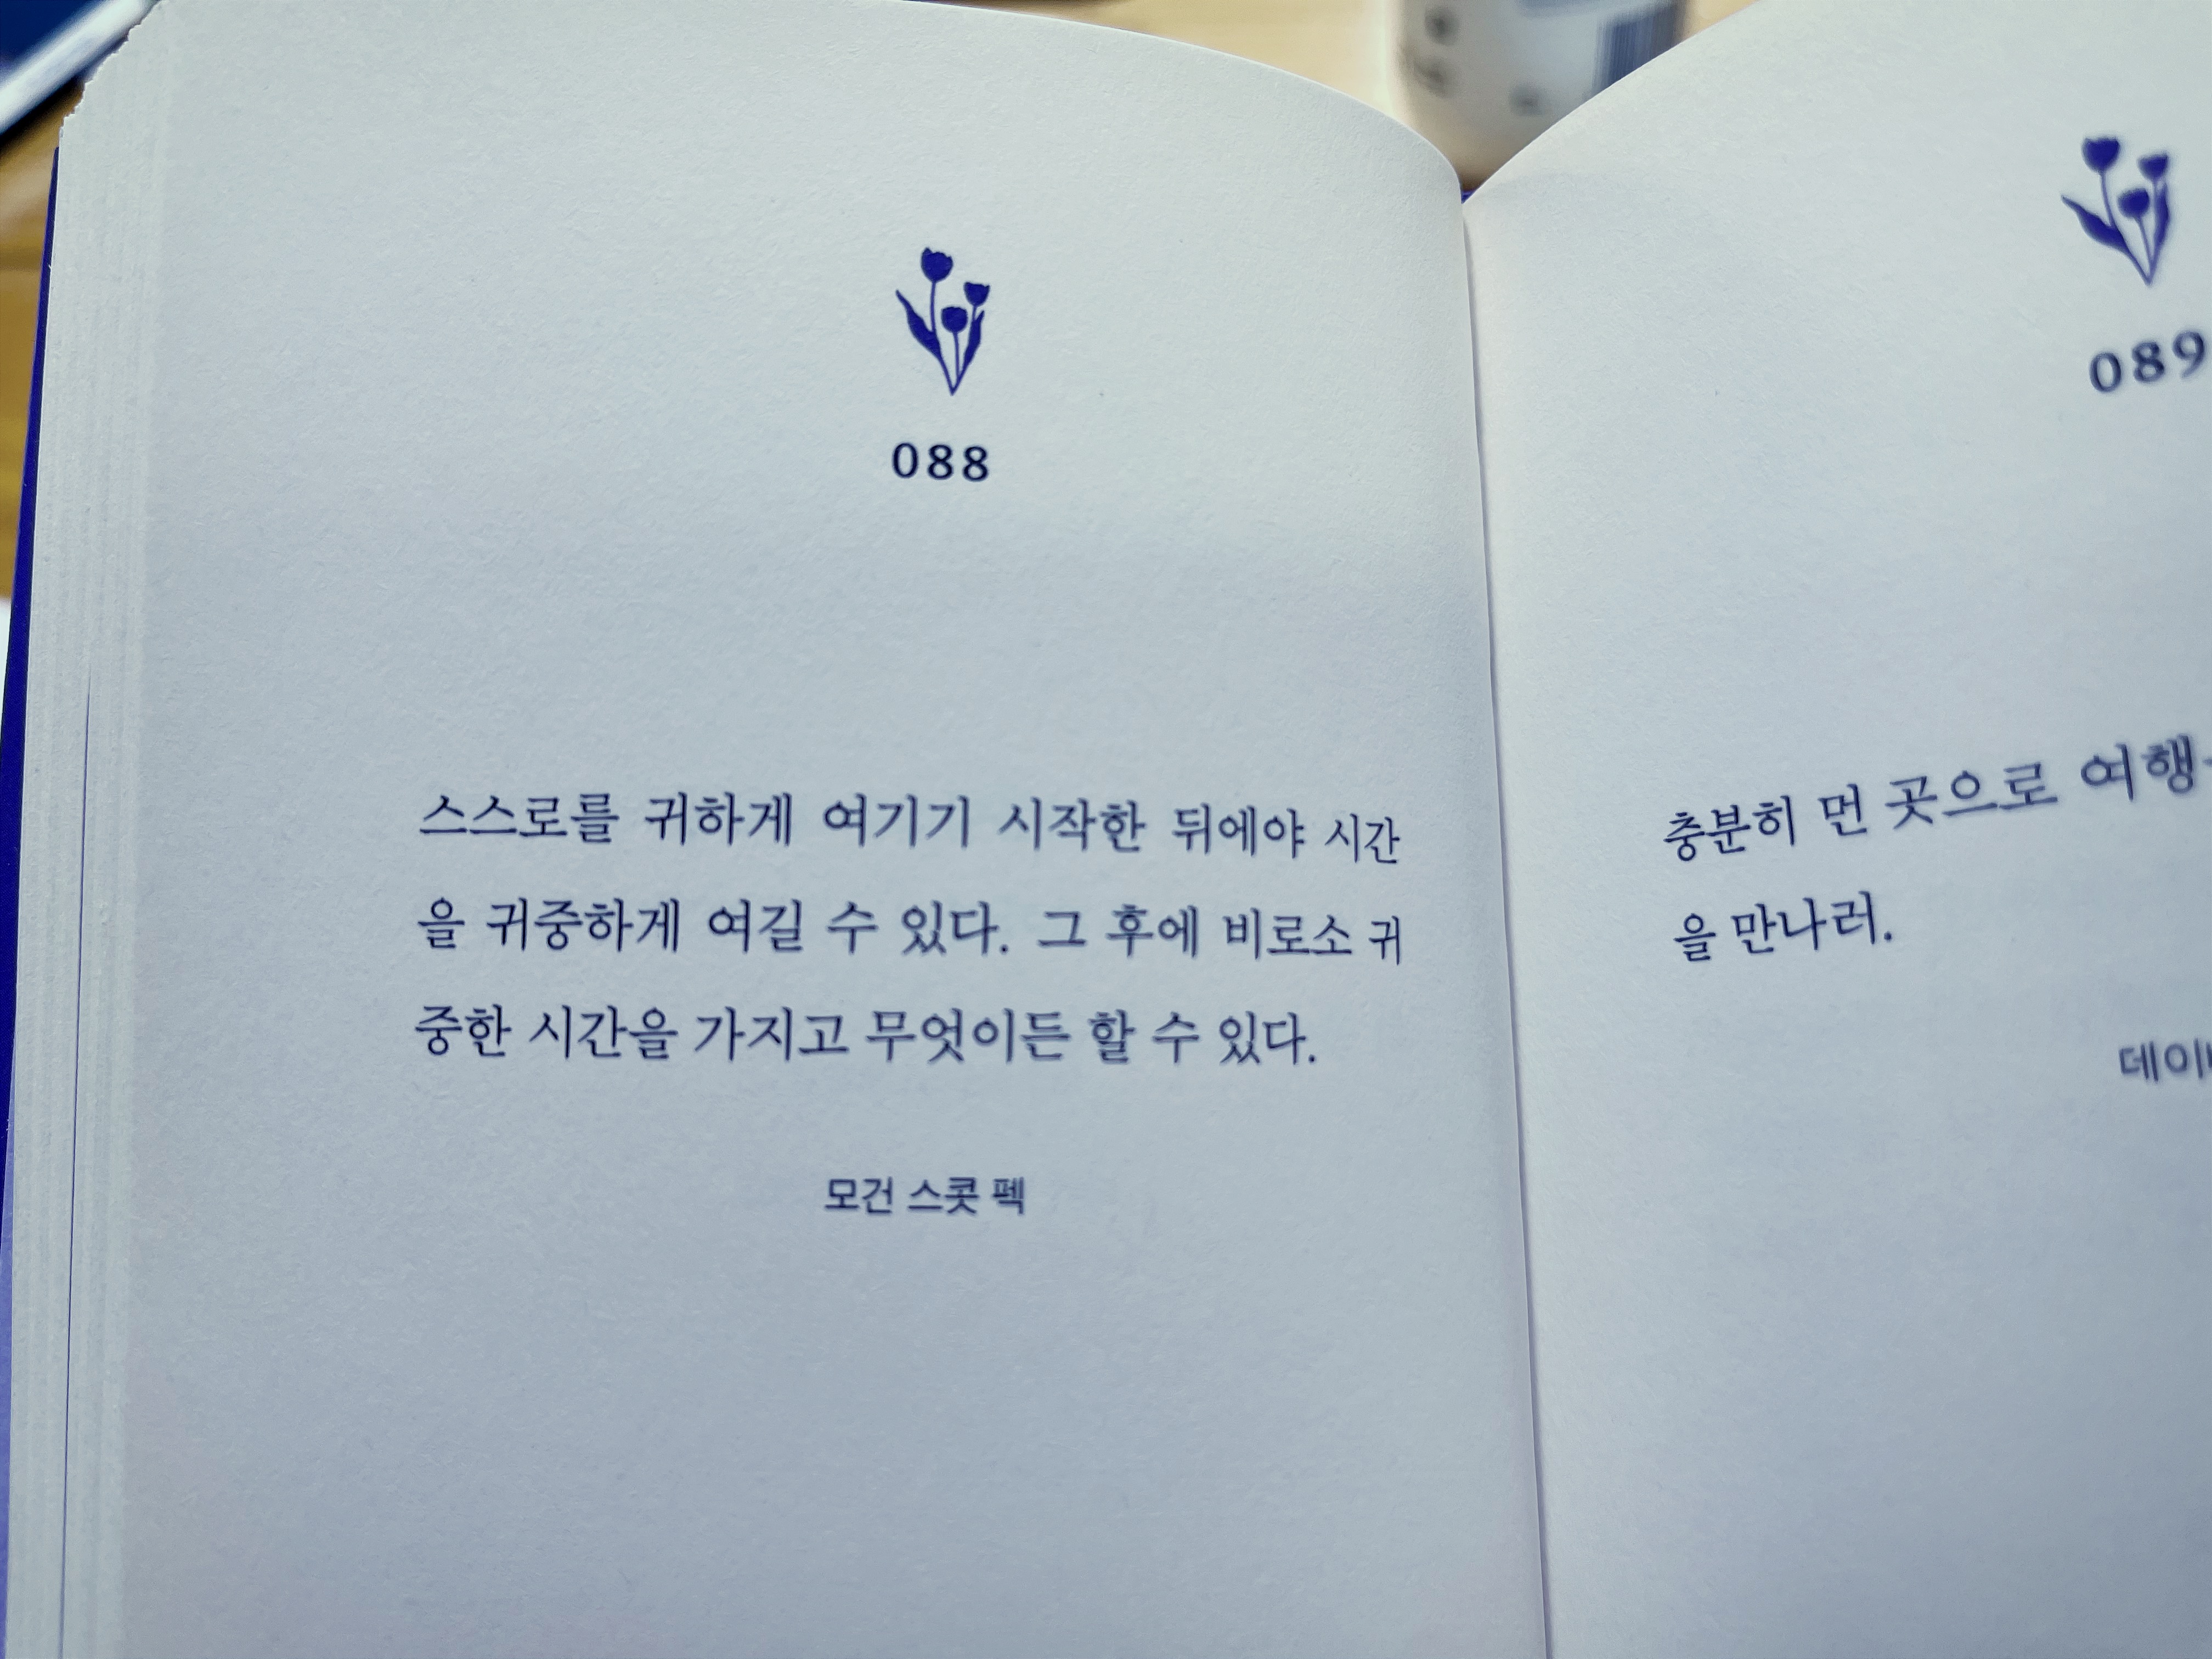 088
스스로를 귀하게 여기기 시작한 뒤에야 시간
을 귀중하게 여길 수 있다. 그 후에 비로소 귀
중한 시간을 가지고 무엇이든 할 수 있다.
모건 스콧 펙
089
충분히 먼 곳으로 여행
을 만나러.
데이